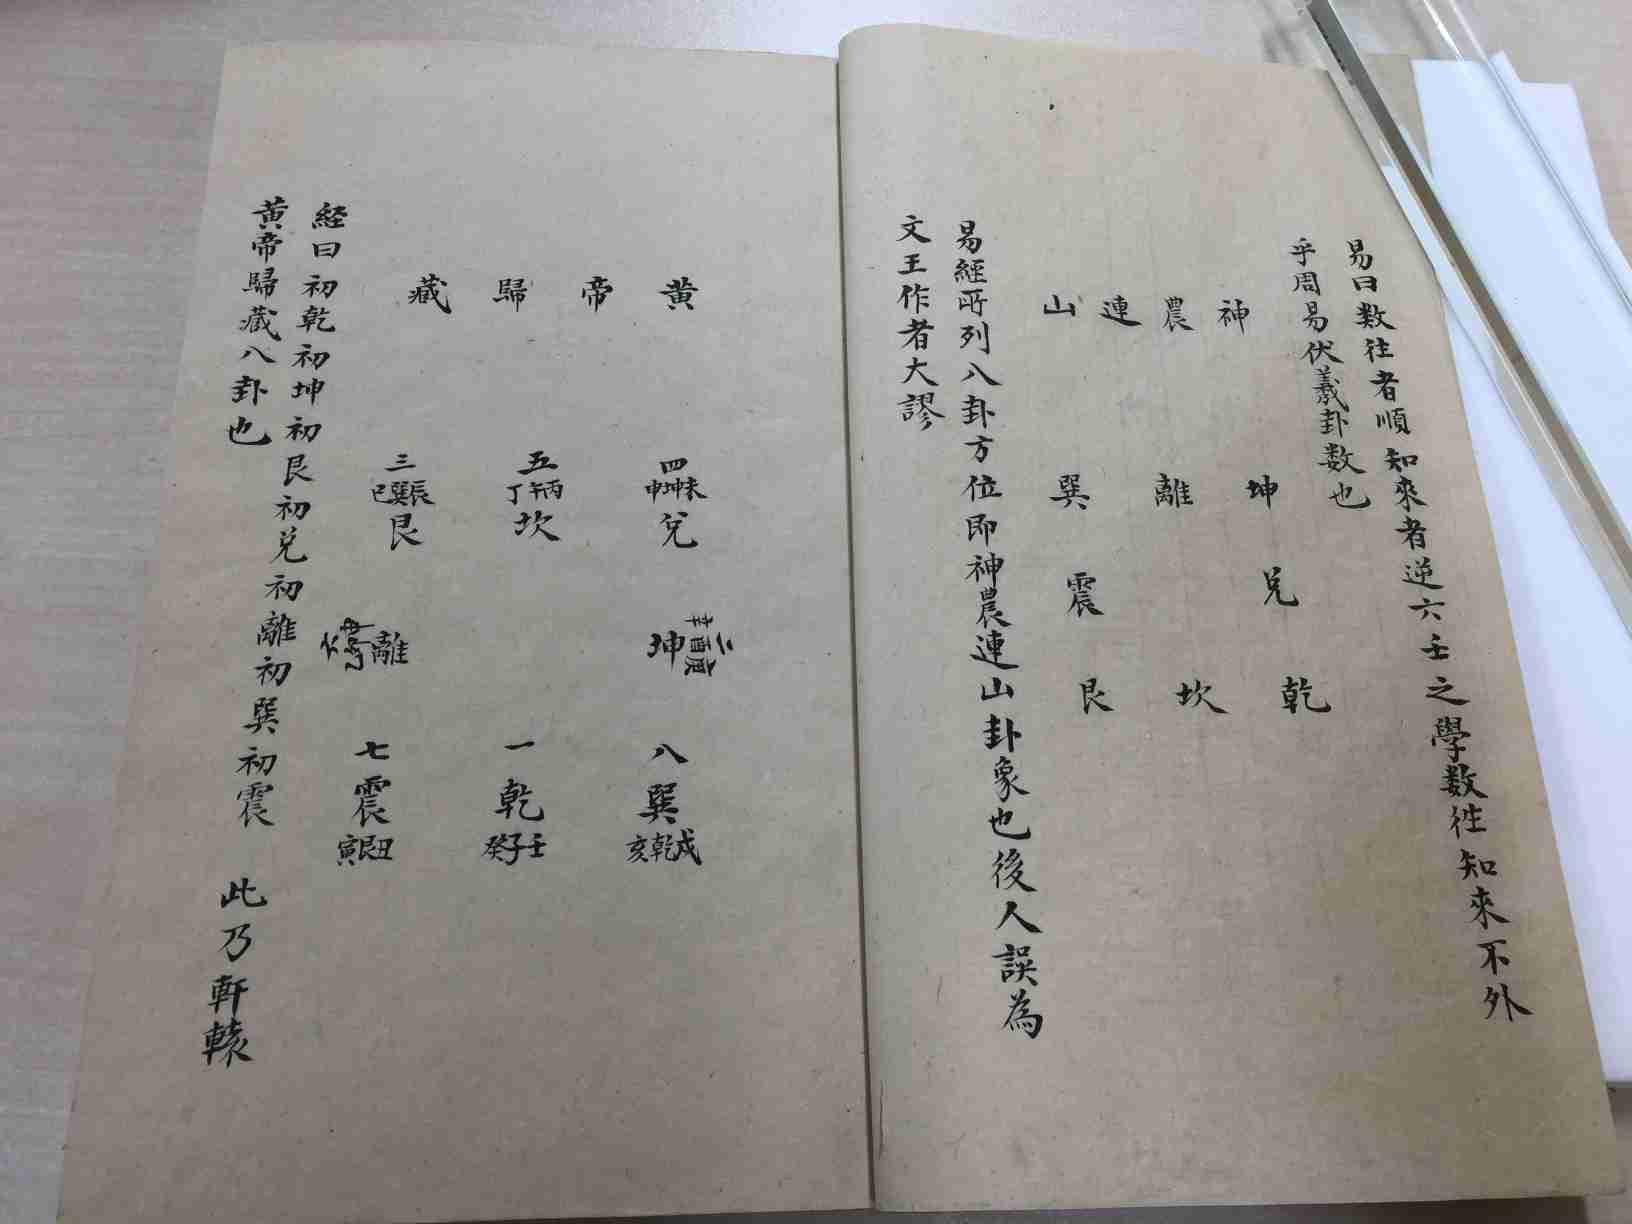 易曰数往者順知來者逆六壬之學数徃知來不外
乎周易伏羲卦数也
神農連山
坤離巽
兌震
乾坎艮
易經所列八卦方位即神農連山卦象也後人誤為
文王作者大謬
黄帝歸藏
四五三
未坤申丙午丁辰巽巳
兌坎艮
二庚酉辛坤離
八一七
巽乾震
戌乾亥壬子癸丑艮寅
経曰初乾初坤初艮初兌初離初巽初震此乃軒轅
黄帝歸藏八卦也